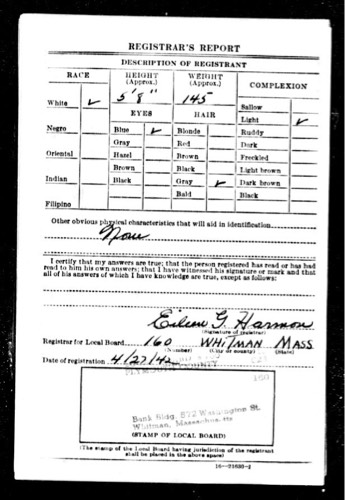 REGISTRAR'S REPORT
DESCRIPTION OF REGISTRANT
RACE
HEIGHT (Approx.)
WEIGHT (Approx.)
COMPLEXION
White ✓
5' 8"
145
Sallow
EYES
HAIR
Light ✓
Negro
Blue ✓
Blonde
Ruddy
Gray
Red
Dark
Oriental
Hazel
Brown
Freckled
Brown
Black
Light brown
Indian
Black
Gray ✓
Dark brown
Bald
Black
Filipino
Other obvious physical characteristics that will aid in identification
None
I certify that my answers are true; that the person registered has read or has had
read to him his own answers; that I have witnessed his signature or mark and that
all of his answers of which I have knowledge are true, except as follows:
G. Harmon
(Signature of registrar)
Registrar for Local Board 160 WHITMAN MASS
(Number) (City or county) (State)
Date of registration 4/27/42
PLYMOUTH COUNTY
160
Bank Bldg. 572 Washington St.
Whitman, Massachusetts
(STAMP OF LOCAL BOARD)
(The stamp of the Local Board having jurisdiction of the registrant
shall be placed in the above space)
16—21630-2